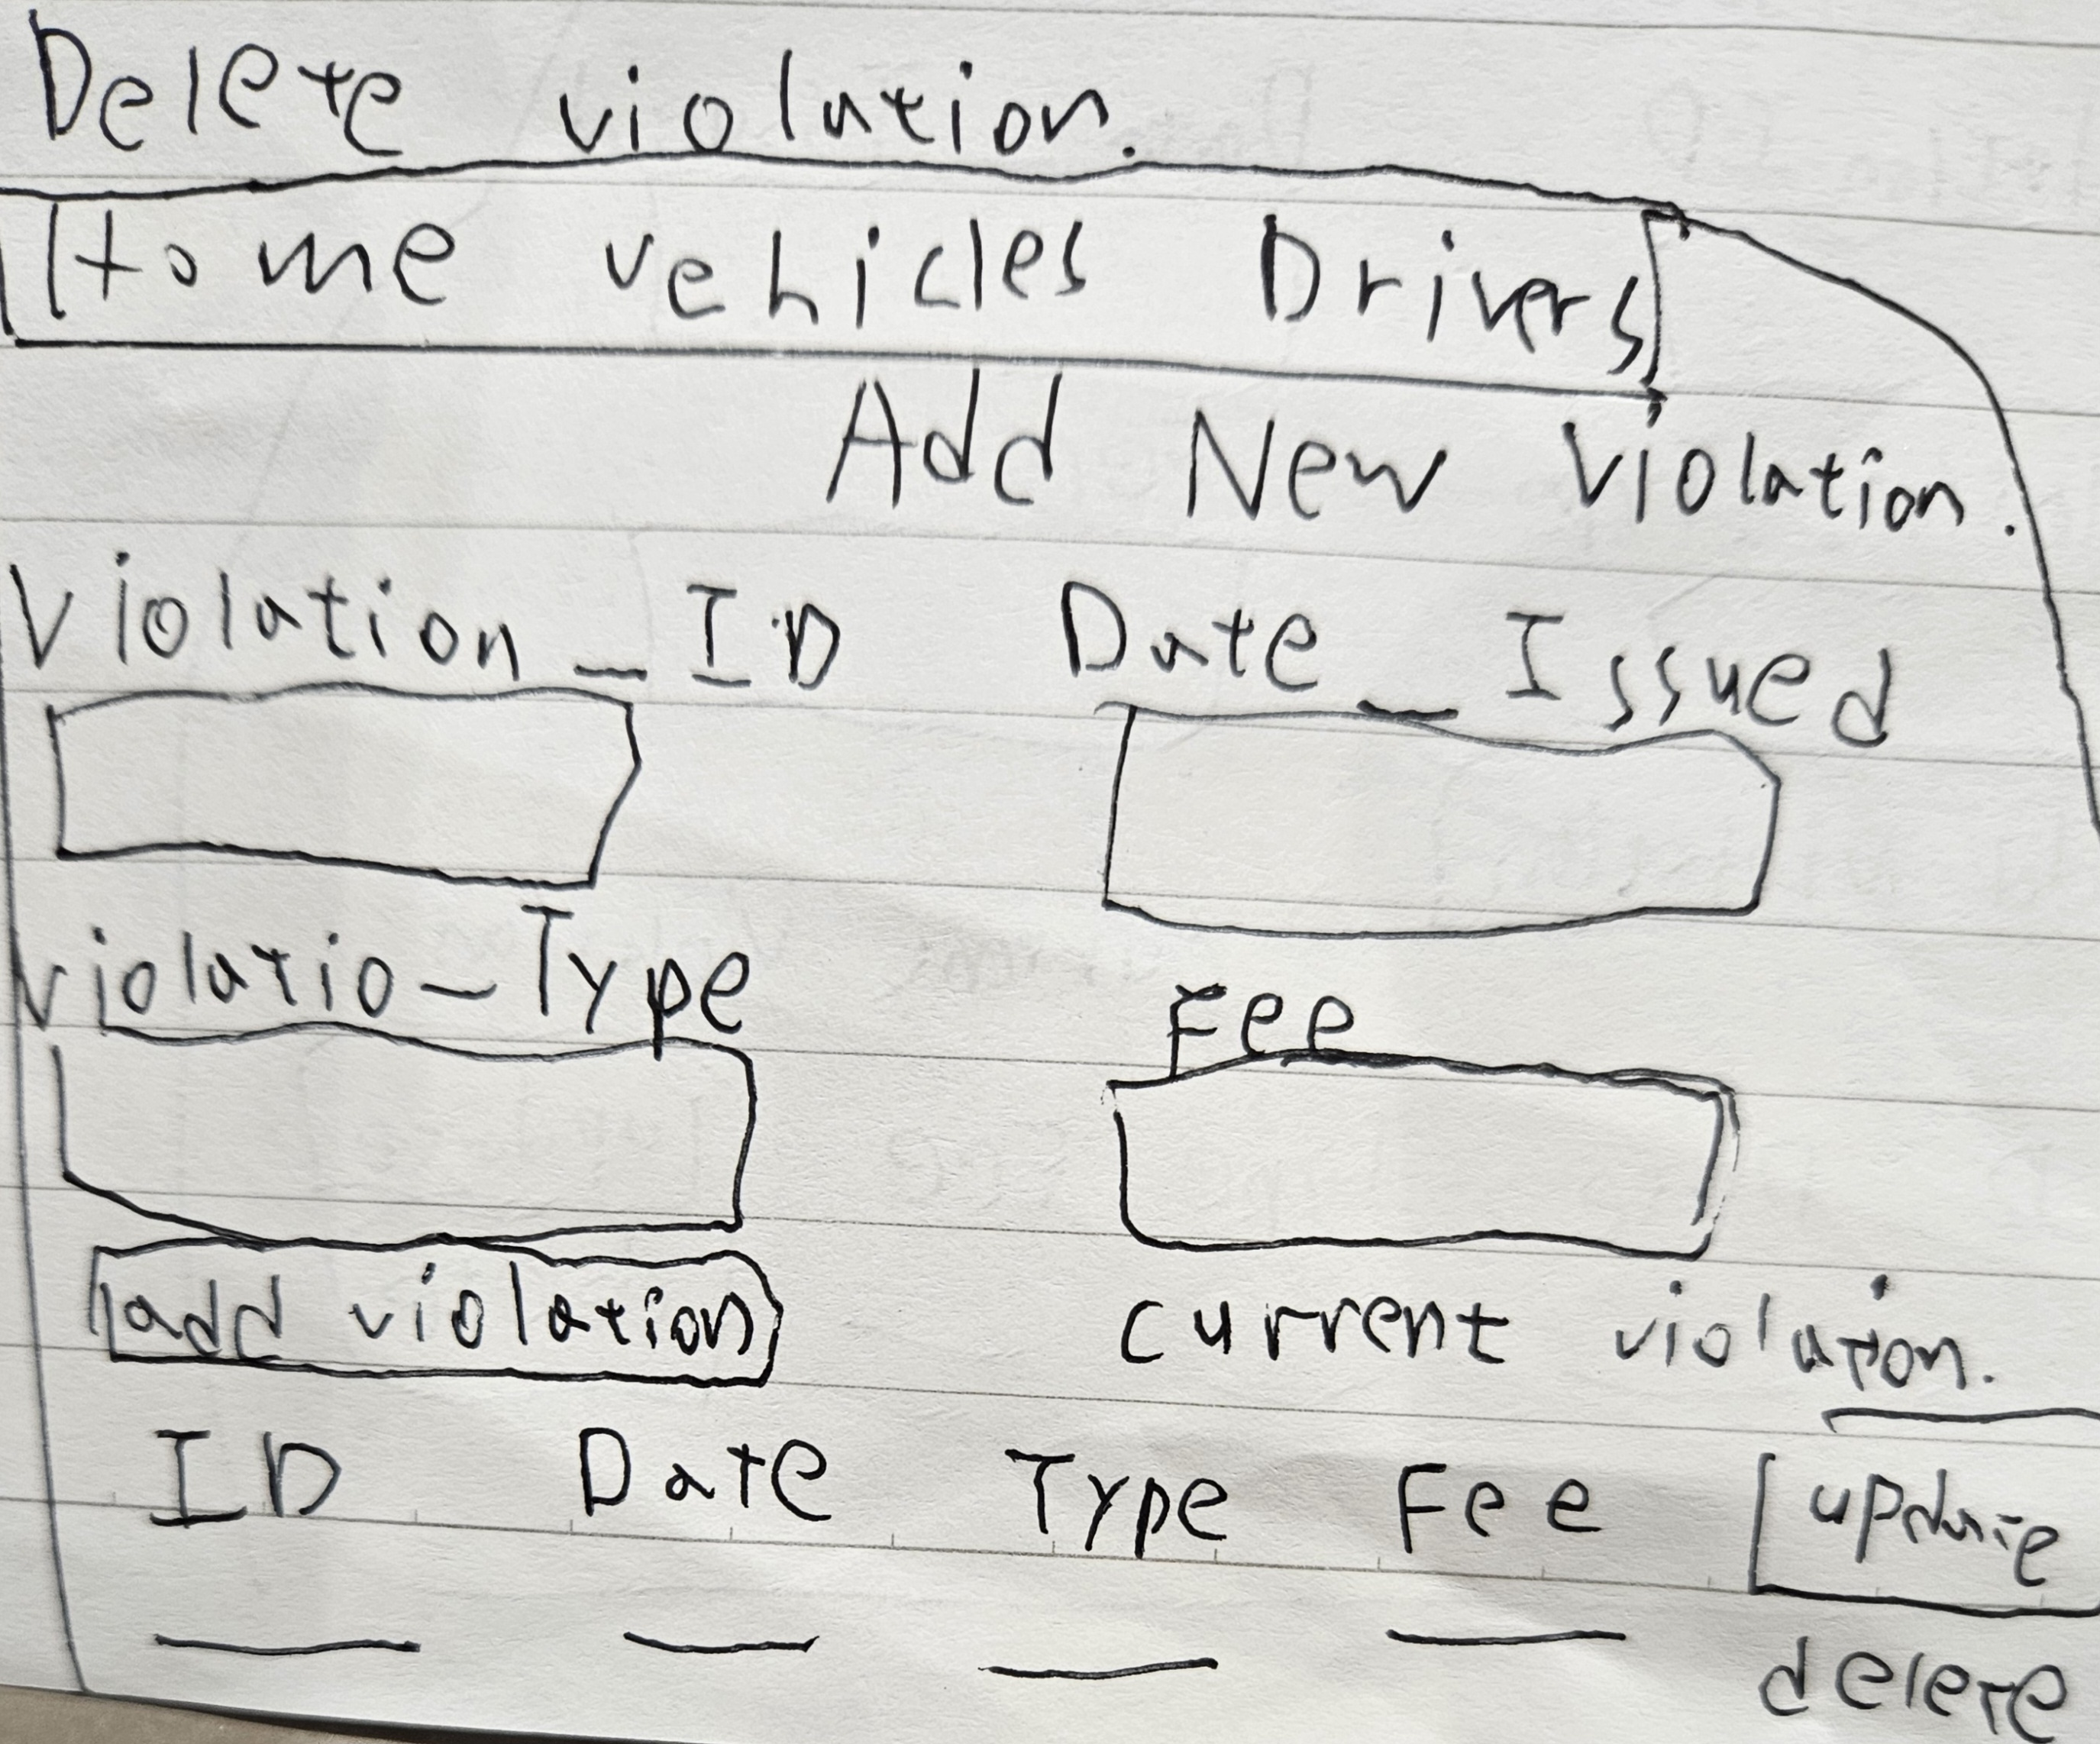 Delete violation.
Home vehicles Drivers
Add New Violation.
Violation_ID Date_Issued
violatio_Type Fee
add violation current violation.
ID Date Type Fee update
delete